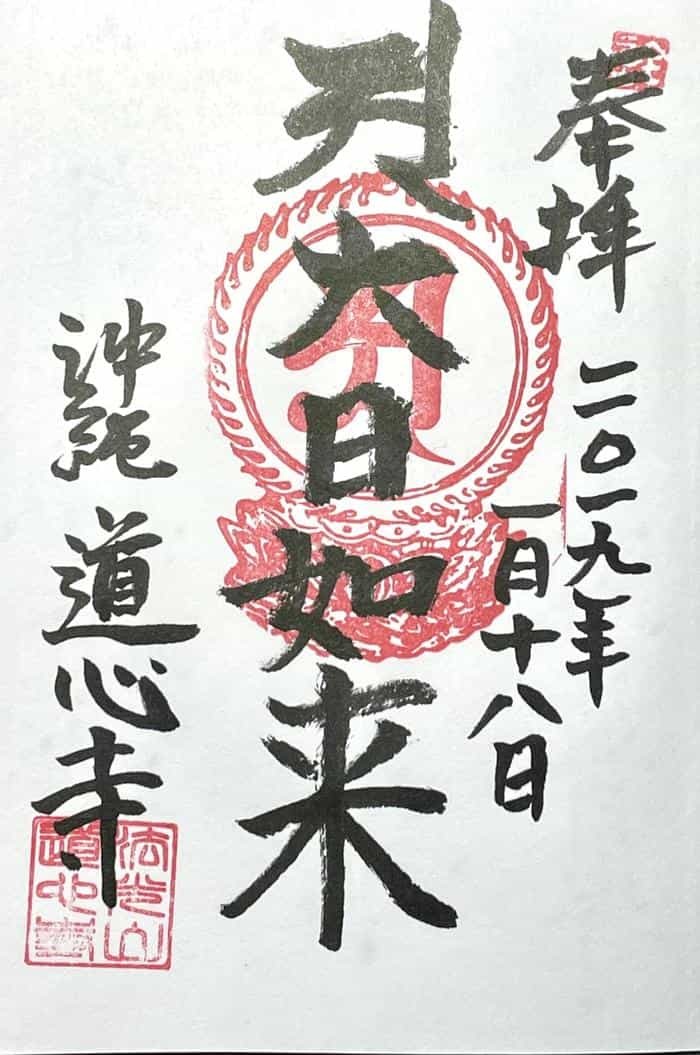 奉拝 二〇一九年
一月十八日
大日如来
沖縄 道心寺
法光山
道心寺